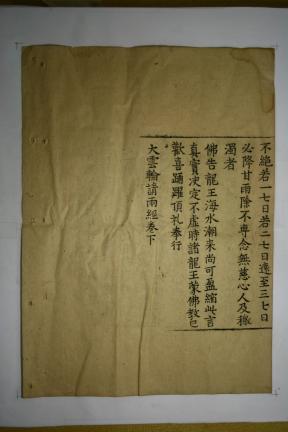 不絶若一七日若二七日遠至三七日
必降甘雨除不専念無慈心人及穢
濁者
佛告龍王海水潮来尚可盈縮此言
真實决定不虚時諸龍王蒙佛教已
歡喜踊躍頂礼奉行
大雲輪請雨經卷下